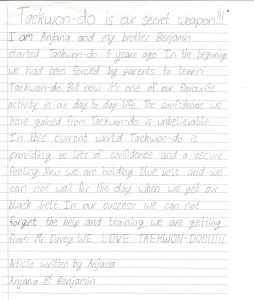 Taekwon-do is our secret weapon!!!
I am Anjana and my brother Benjamin
started Taekwon-do 4 years ago. In the beginning
we had been forced by parents to learn
Taekwon-do. But now it's one of our favourite
activity in our day to day life. The confidence we
have gained from Taekwon-do is unbelievable.
In this current world Taekwon-do is
providing us lots of confidence and a secure
feeling. Now we are holding blue belt and we
can not wait for the day when we get our
black belt. In our success we can not
forget the help and training we are getting
from Mr Davey. WE LOVE TAEKWON-DO!!!!!!!
Article written by Anjana
Anjana & Benjamin